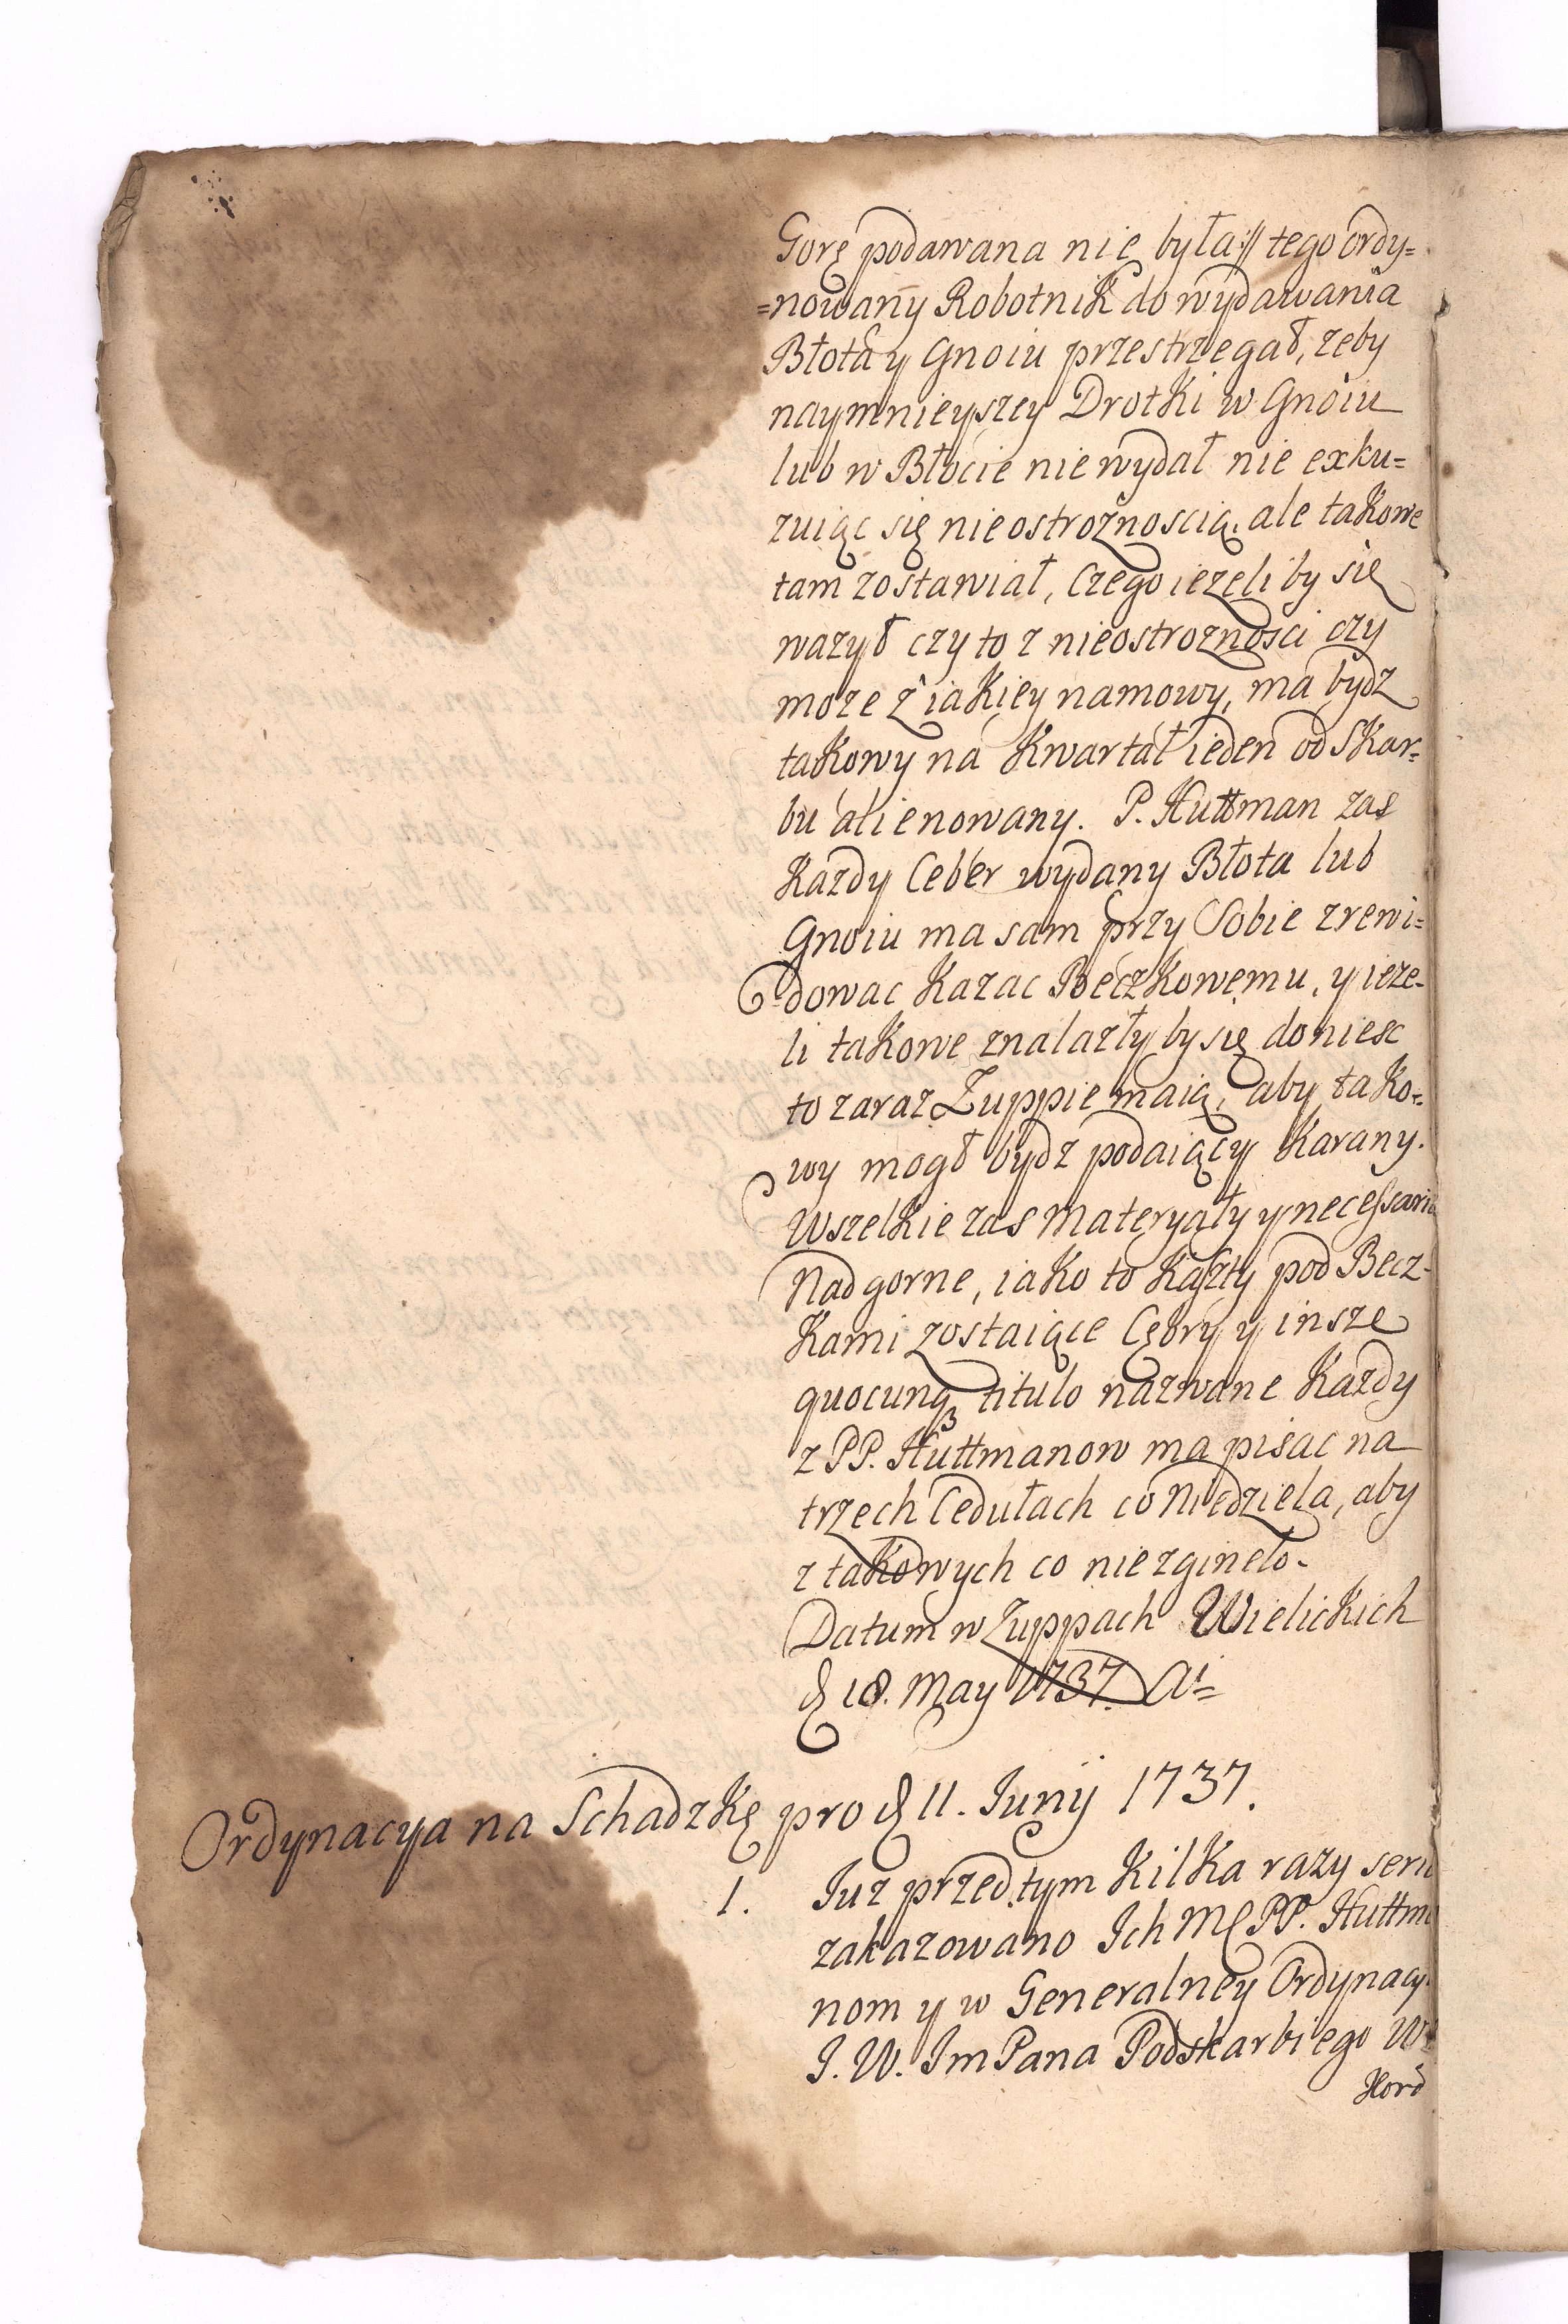 Gorę podawana nie była:// tego ordy=
=nowany Robotnik do wydawania
Błota y Gnoiu przestrzegał, zeby
naymnieyszey Drotki w Gnoiu
lub w Błocie nie wydał nie exku=
zuiąc się nieostroznoscią, ale takowe
tam zostawiał, Czego iezeliby się
wazył czy to z nieostroznosci czy
moze z iakiey namowy, ma bydz
takowy na Kwartał ieden od Skar=
bu alienowany. P. Huttman zas
Kazdy Ceber wydany Błota lub
Gnoiu ma sam przy Sobie zrewi=
=dowac Kazac Beczkowemu, y ieze=
li takowe znalazłyby się doniesc
to zaraz Zuppie maią, aby tako=
wy mogł bydz podaiący Karany.
Wszelkie zas Materyały y necessaria
Nadgorne, iako to Kaszty pod Becz=
kami zostaiące Cębry y insze
quocunqз titulo nazwane Kazdy
z PP. Huttmanow ma pisac na
trzech Cedułach co Niedziela, aby
z takowych co niezgineło.
Datum w Zuppach Wielickich
d 18. May 1737. Ai=
Ordynacya na Schadzkę pro d 11. Junij 1737.
1. Juz przedtym Kilka razy serio
zakazowano Ich Mc PP. Huttma
nom y w Generalney Ordynacyi
J. W. Jm Pana Podskarbiego W